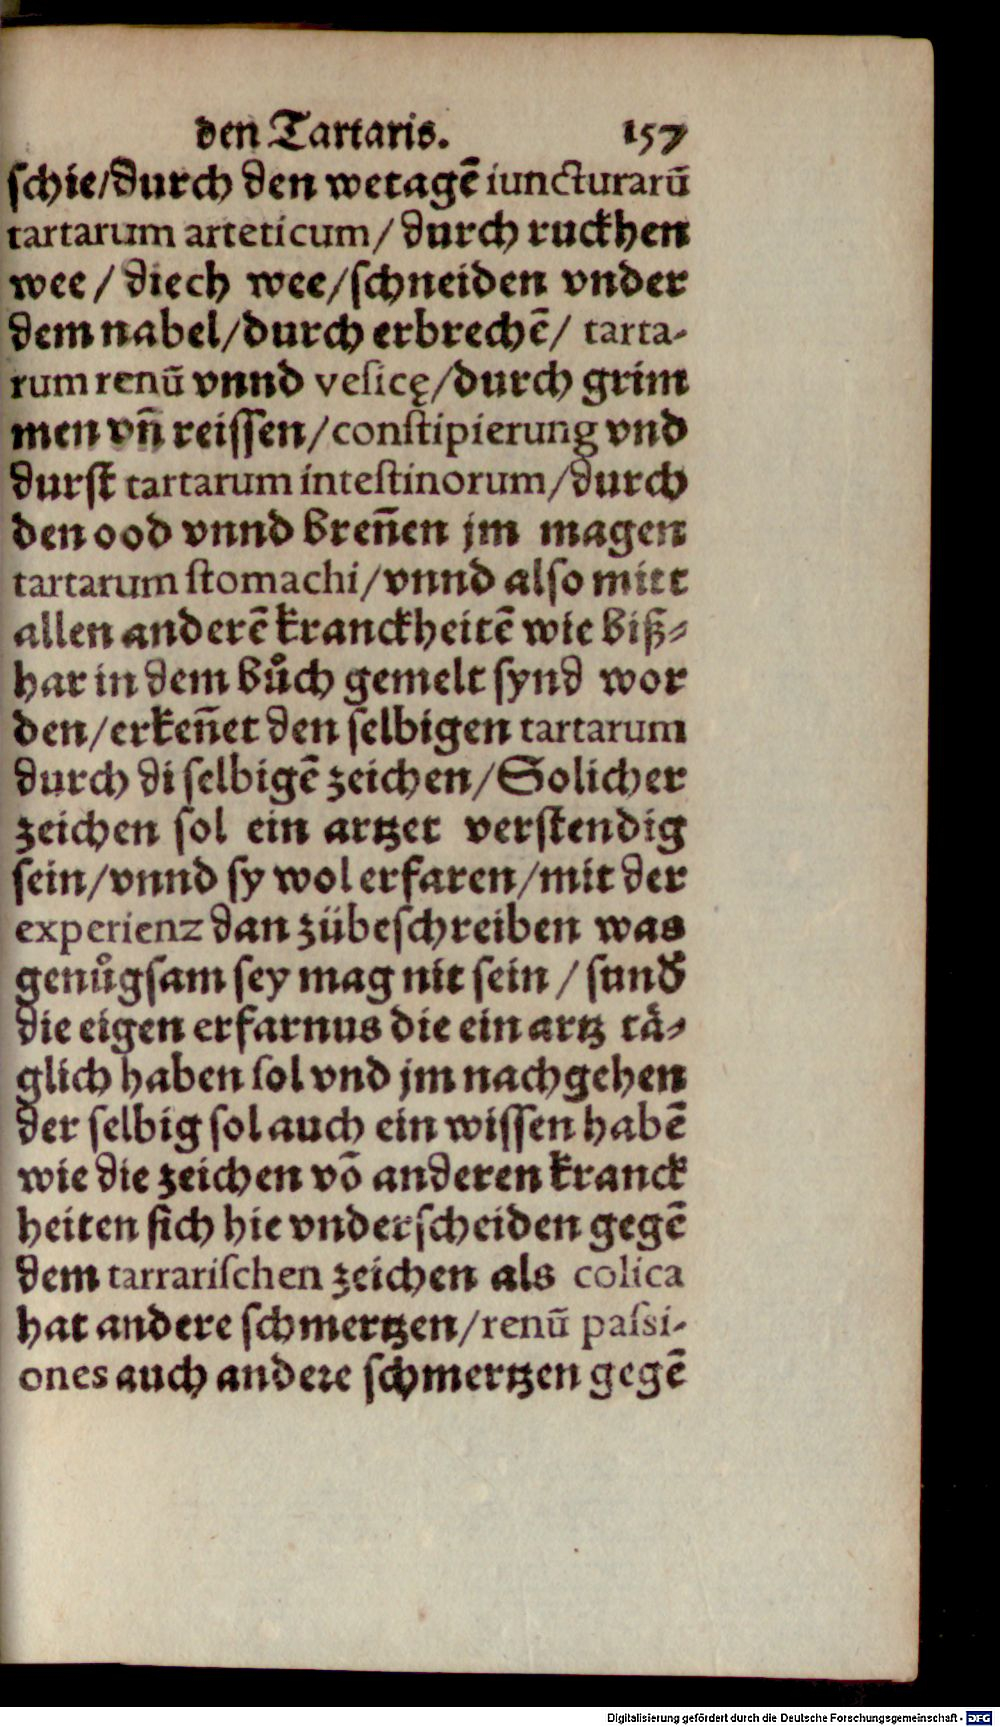 den Tartaris. 157
schie/durch den wetagẽ iuncturarũ
tartarum arteticum/ durch ruckhen
wee / diech wee/schneiden vnder
dem nabel/durch erbrechẽ/ tarta-
rum renũ vnnd vesicę/durch grim
men vñ reissen/constipierung vnd
durst tartarum intestinorum/durch
den ood vnnd breñen jm magen
tartarum stomachi/vnnd also mitt
allen anderẽ kranckheitẽ wie biß-
har in dem bůch gemelt synd wor
den/erkeñet den selbigen tartarum
durch di selbigẽ zeichen/Solicher
zeichen sol ein artzet verstendig
sein/vnnd sy wol erfaren/mit der
experienz dan zübeschreiben was
genůgsam sey mag nit sein / sund
die eigen erfarnus die ein artz tä-
glich haben sol vnd jm nachgehen
der selbig sol auch ein wissen habẽ
wie die zeichen võ anderen kranck
heiten sich hie vnderscheiden gegẽ
dem tarrarischen zeichen als colica
hat andere schmertzen/renũ passi-
ones auch andere schmertzen gegẽ
Digitalisierung gefördert durch die Deutsche Forschungsgemeinschaft - DFG